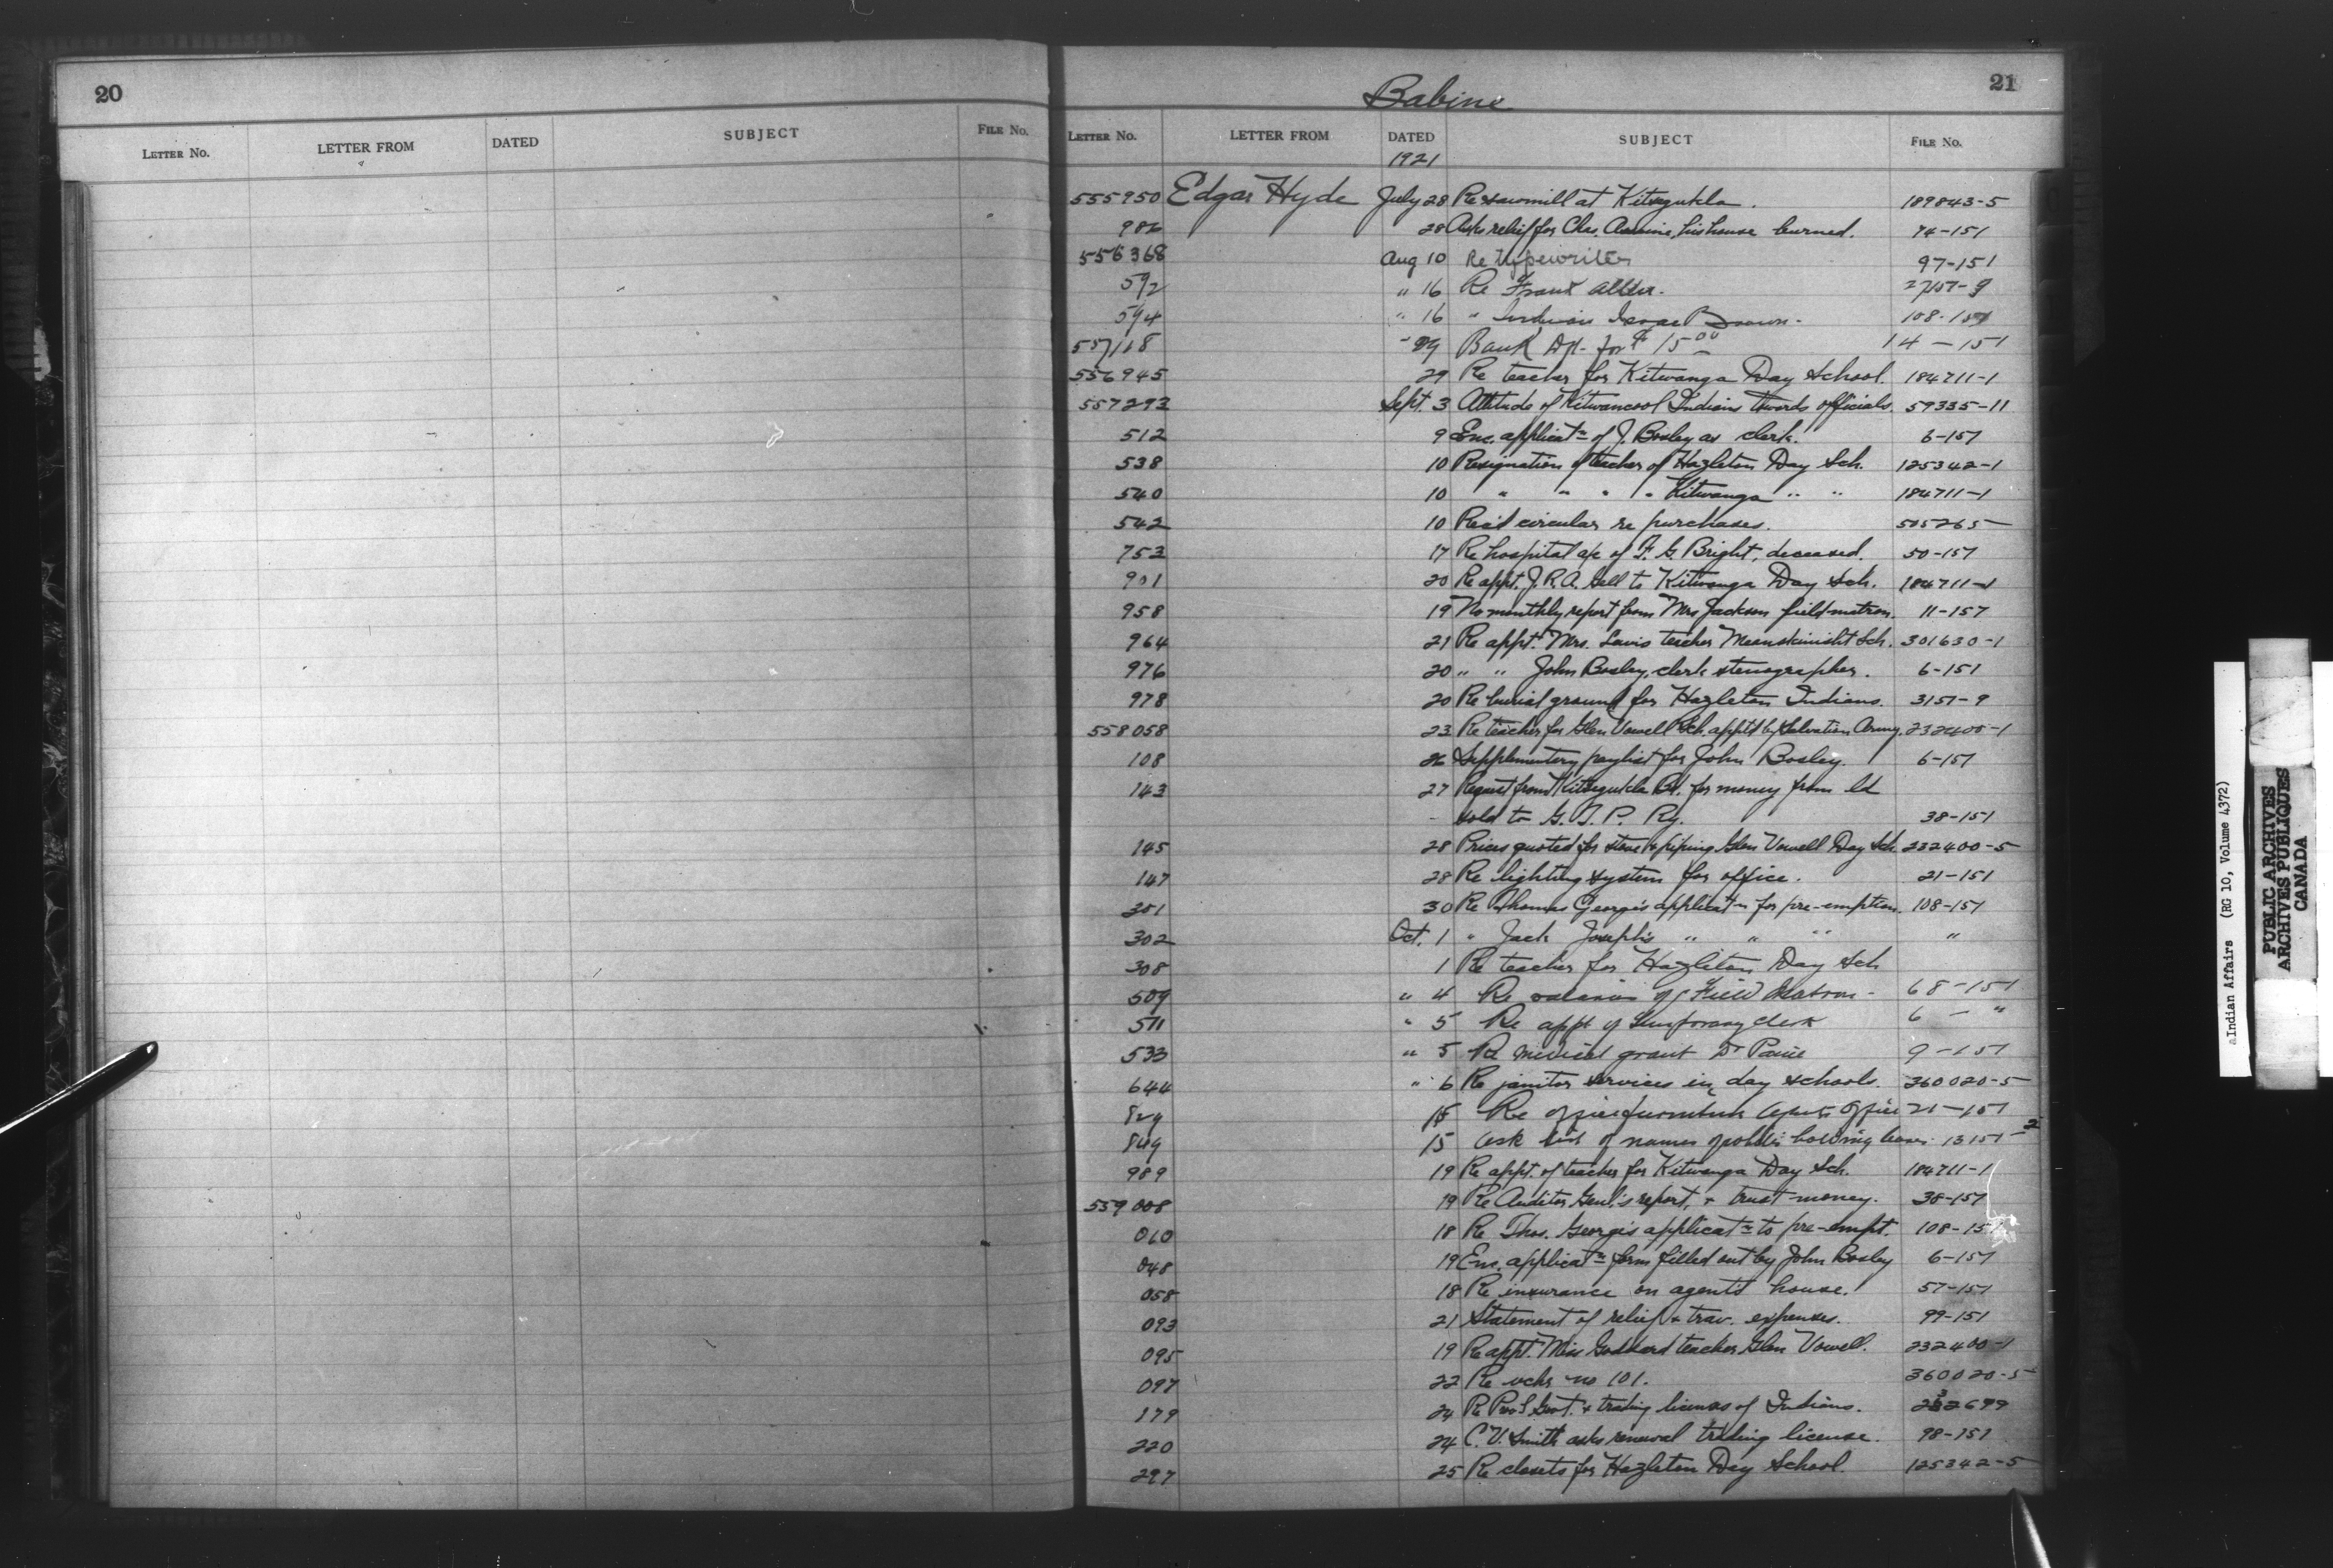 20
LETTER No. LETTER FROM DATED SUBJECT FILE No.
Babine
21
LETTER No. LETTER FROM DATED SUBJECT FILE No.
1921
555950 Edgar Hyde July 28 Re sawmill at Kitsegukla. 189843-5
986 28 Asks relief for Chas. his house burned. 74-151
556368 Aug 10 Re typewriter 97-151
592 " 16 Re Frank 27157-9
594 " 16 " Isaac Brown. 108-157
557118 29 Bank Dft. for $15.00 14-151
556945 29 Re teacher for Kitwanga Day School. 184711-1
557293 Sept. 3 Attitude of Kitwancool Indians twords officials. 59335-11
512 9 Enc. applicatn of J. Bosley as clerk. 6-157
538 10 Resignation of teacher of Hazleton Day Sch. 125342-1
540 10 " " " " Kitwanga " " 184711-1
542 10 Recd circular re purchases. 505265
753 17 Re hospital a/c of F. G. Bright, deceased. 50-157
901 20 Re appt. J. R. A. Sell to Kitwanga Day Sch. 184711-1
958 19 No monthly report from Mrs Jackson field matron. 11-157
964 21 Re appt. Mrs. Lewis teacher Meanskinisht Sch. 301630-1
976 20 " " John Bosley, clerk stenographer. 6-151
978 20 Re burial ground for Hazleton Indians. 3151-9
558058 23 Re teacher for Glen Vowell Sch. apptd by Salvation Army. 232400-1
108 26 Supplementery paylist for John Bosley. 6-157
143 27 Request from Kitsegukla Bd. for money from ld
sold to G. T. P. Ry. 38-151
145 28 Prices quoted for stove & piping Glen Vowell Day Sch. 232400-5
147 28 Re lighting system for office. 21-151
301 30 Re Thomas George's applicatn for pre-emption. 108-157
302 Oct. 1 " Jack Joseph's " " " "
308 1 Re teacher for Hazleton Day Sch
509 " 4 Re salaries of Field Matron - 68-151
511 " 5 Re appt of temporary clerk 6 - "
533 " 5 Re medical grant Dr 9-151
644 " 6 Re janitor services in day schools. 360020-5
829 15 Re office furniture Agents Office 21-157
849 15 Ask list of names of holding leases 13151-2
989 19 Re appt. of teacher for Kitwanga Day Sch. 184711-1
559008 19 Re Auditor Genl.'s report, & trust money. 38-157
010 18 Re Thos. George's applicatn to pre-empt. 108-15
048 19 Enc. applicatn form filled out by John Bosley 6-157
058 18 Re insurance on agent's house. 57-151
093 21 Statement of relief & trav. expenses. 99-151
095 19 Re appt. Miss Goddard teacher Glen Vowell. 232400-1
097 22 Re vchr no 101. 360020-5
179 24 Re Govt. & trading licenses of Indians. 232699
220 24 C. V. Smith asks renewal trading license. 98-151
297 25 Re closets for Hazleton Day School. 125342-5
aIndian Affairs (RG 10, Volume 4372)
PUBLIC ARCHIVES
ARCHIVES PUBLIQUES
CANADA